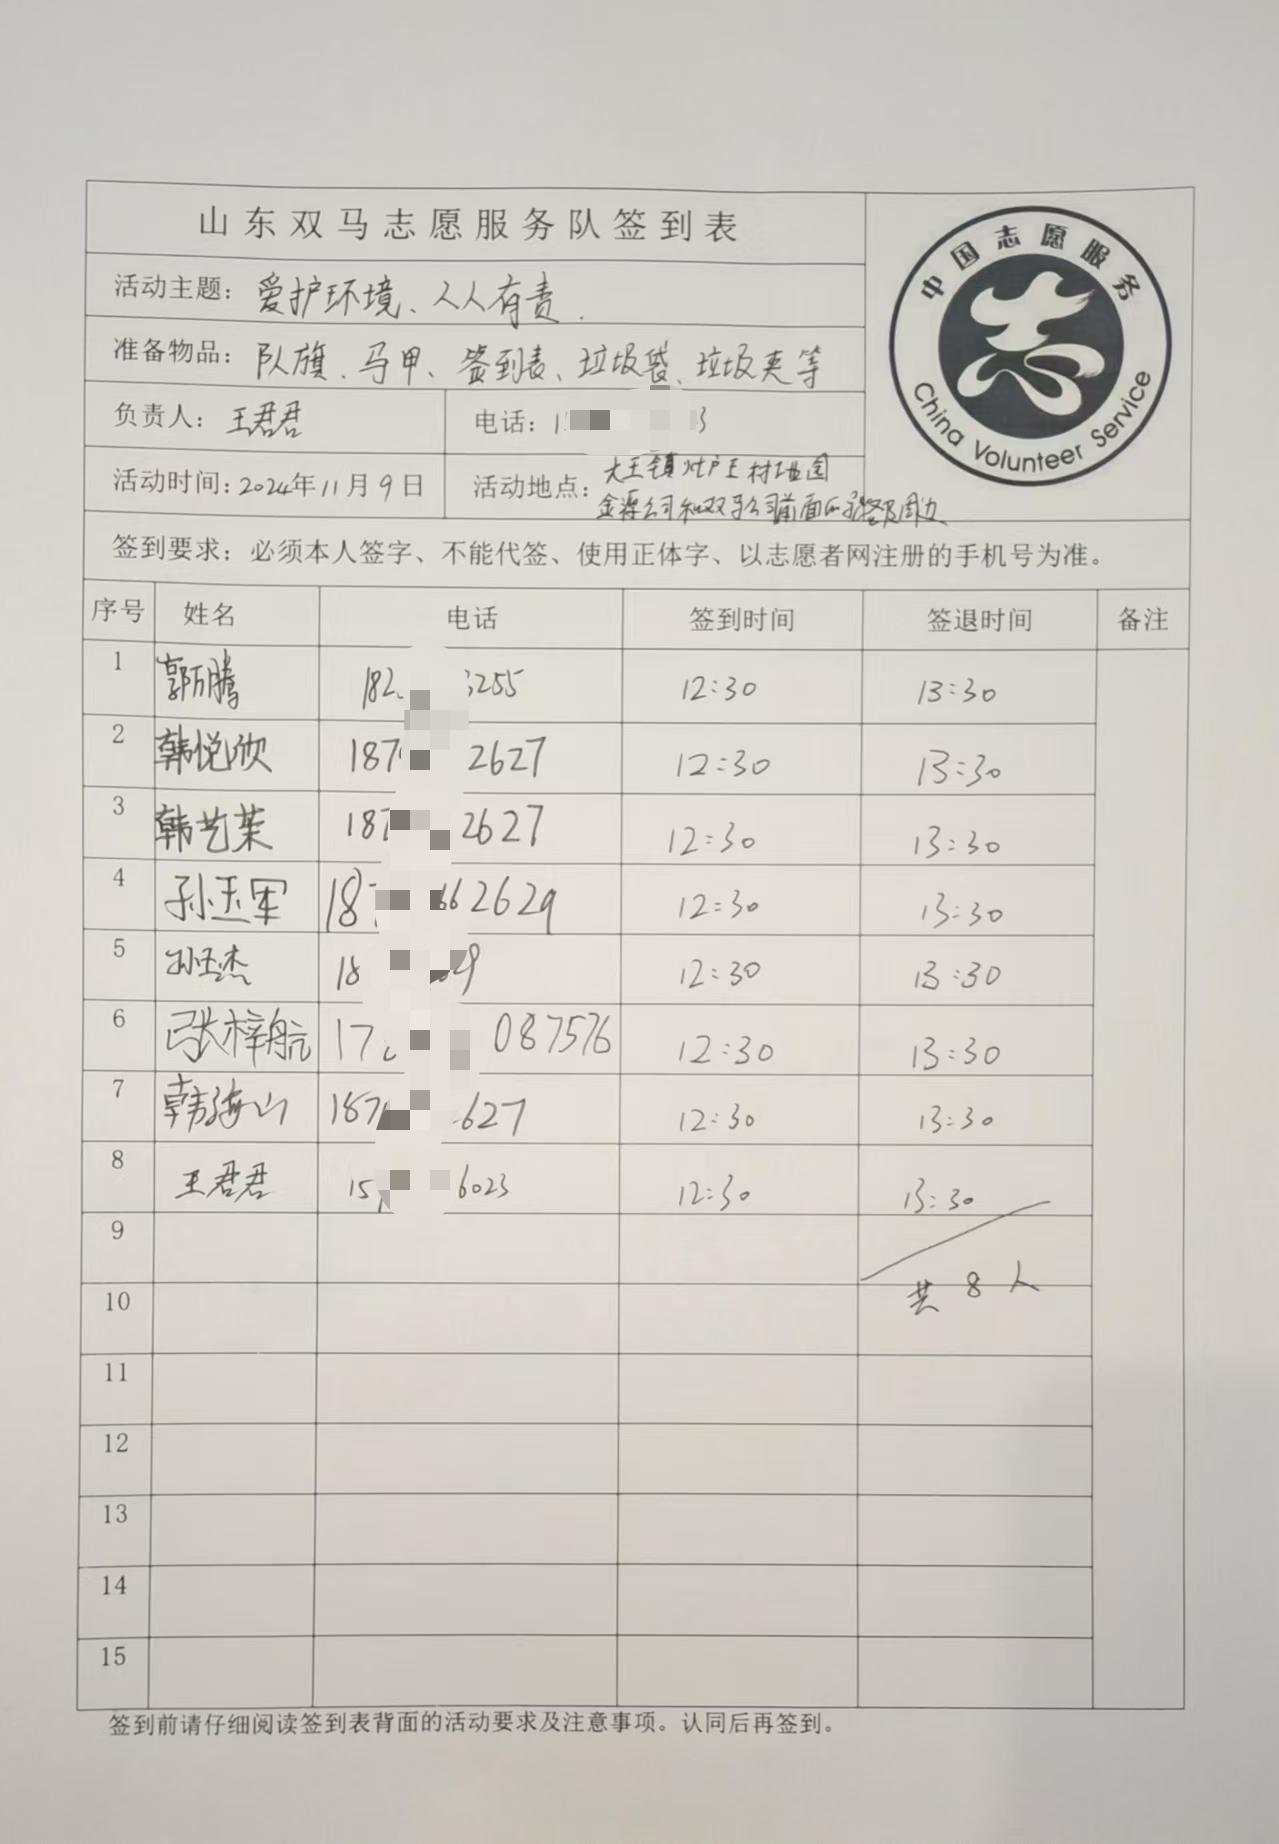 山东双马志愿服务队签到表
中国志愿服务
China Volunteer Service
活动主题：爱护环境、人人有责.
准备物品：队旗、马甲、签到表、垃圾袋、垃圾夹等
负责人：王君君 电话：1 3
活动时间：2024年11月9日 活动地点：大王镇 王村工业园
金源公司和双马公司前面 周边
签到要求：必须本人签字、不能代签、使用正体字、以志愿者网注册的手机号为准。
序号 姓名 电话 签到时间 签退时间 备注
1 郭万腾 182 3255 12:30 13:30
2 韩悦欣 187 2627 12:30 13:30
3 韩艺茉 187 2627 12:30 13:30
4 孙玉军 187 662629 12:30 13:30
5 孙玉杰 18 29 12:30 13:30
6 张梓航 17 087576 12:30 13:30
7 韩海山 187 2627 12:30 13:30
8 王君君 15 6023 12:30 13:30
9
共8人
10
11
12
13
14
15
签到前请仔细阅读签到表背面的活动要求及注意事项。认同后再签到。